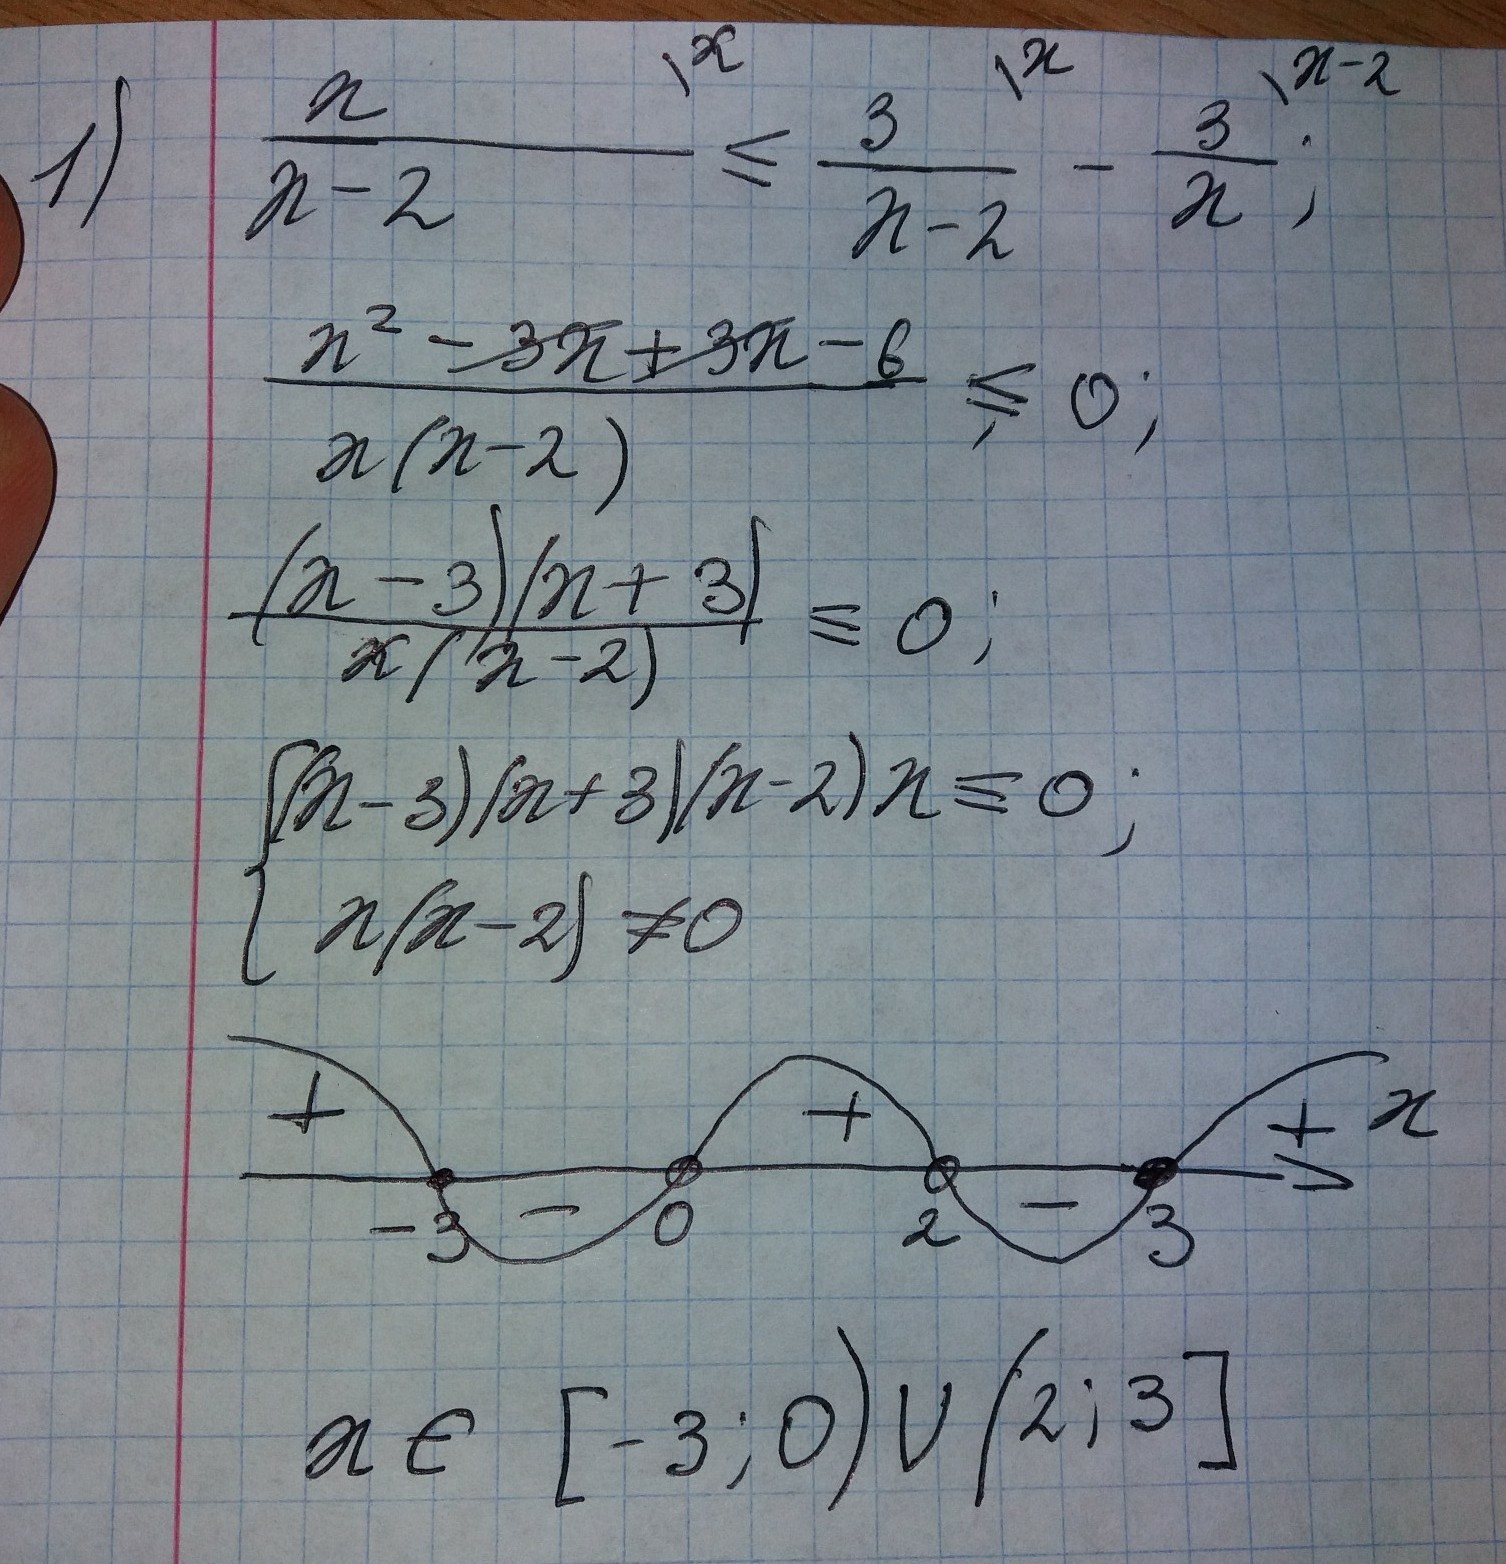 1) x/(x-2) \x ≤ 3/(x-2) \x - 3/x \x-2;
(x² - 3x + 3x - 6)/(x(x-2)) ≤ 0;
((x-3)(x+3))/(x(x-2)) ≤ 0;
{(x-3)(x+3)(x-2)x ≤ 0;
x(x-2) ≠ 0
+ + + x
- -
-3 0 2 3
x ∈ [-3;0)∪(2;3]